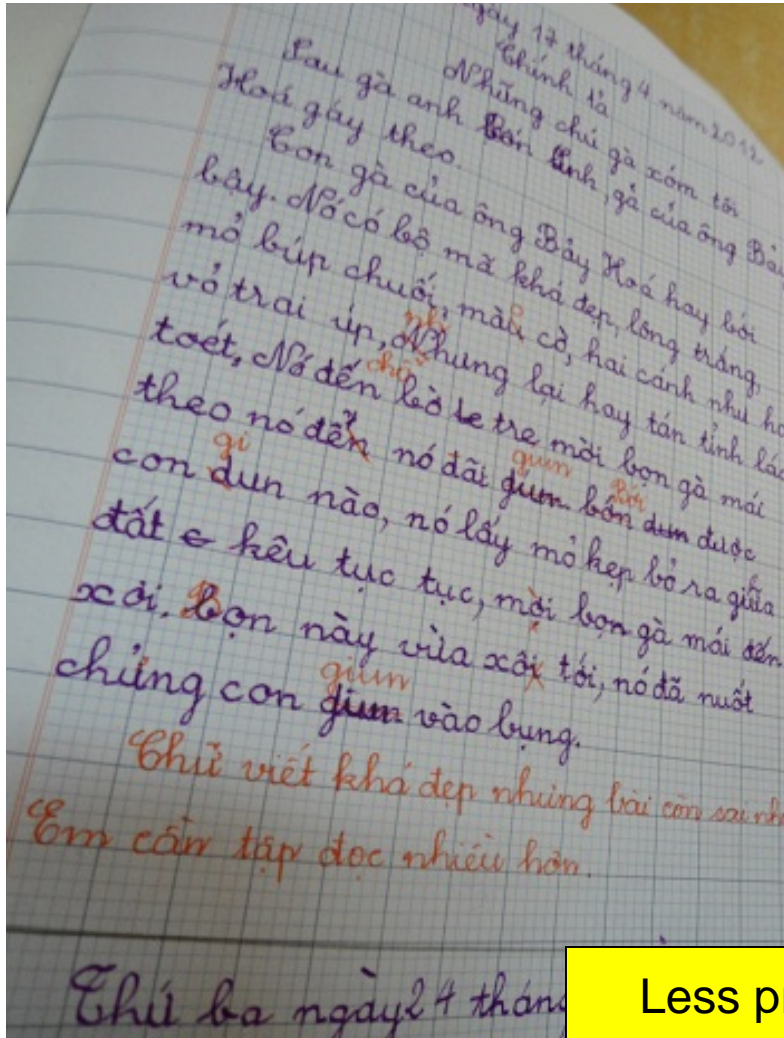 ngày 17 tháng 4 năm 2012
Chính tả
Những chú gà xóm tôi
Sau gà anh Bốn Linh, gà của ông Bảy
Hoá gáy theo.
Con gà của ông Bảy Hoá hay bới
bậy. Nó có bộ mã khá đẹp, lông trắng,
mỏ búp chuối, mào cờ, hai cánh như
vỏ trai úp, Nhưng lại hay tán tỉnh
nh
toét, Nó đến bờ tre mời bọn gà mái
theo nó đến nó đãi giun được
giun bới
con dun nào, nó lấy mỏ kẹp bỏ ra giữa
gi
đất kêu tục tục, mời bọn gà mái đến
xơi. Bọn này vừa xôi tới, nó đã nuốt
chửng con giun vào bụng.
giun
Chữ viết khá đẹp nhưng bài còn sai
Em cần tập đọc nhiều hơn.
Thứ ba ngày 24
Less